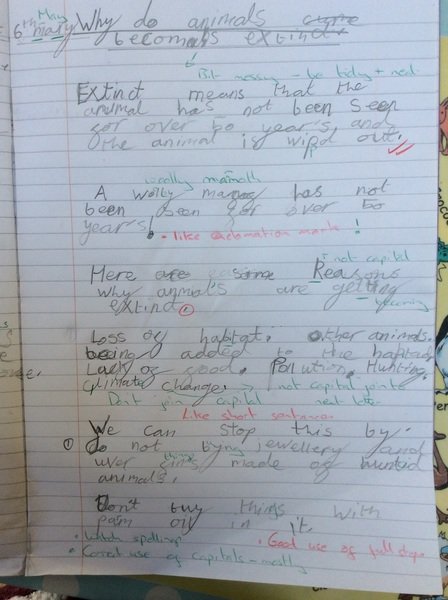 May
6th mary Why do animals
becomals extinct
Bit messy - be tidy + neat
Extinct means that the
animal has not been seen
for over 50 year's, and
the animal is wipd out.
woolly mammoth
A wolly has not
been seen for over 50
year's!
• like exclamation mark!
not capital
Here are some Reasons
why animals are getting
becoming
extinct
Loss of habitat. Other animals.
being added to the habitat.
Lack of food. Pollution. Hunting.
climate change. → not capital
Don't join capital next letter
Like short sentences
We can stop this by:
① do not bying jewellery and
things
uver made of huntid
animals.
Don't buy things with
pam oil in it.
• Watch spelling • Good use of full stops
• Correct use of capitals - mostly